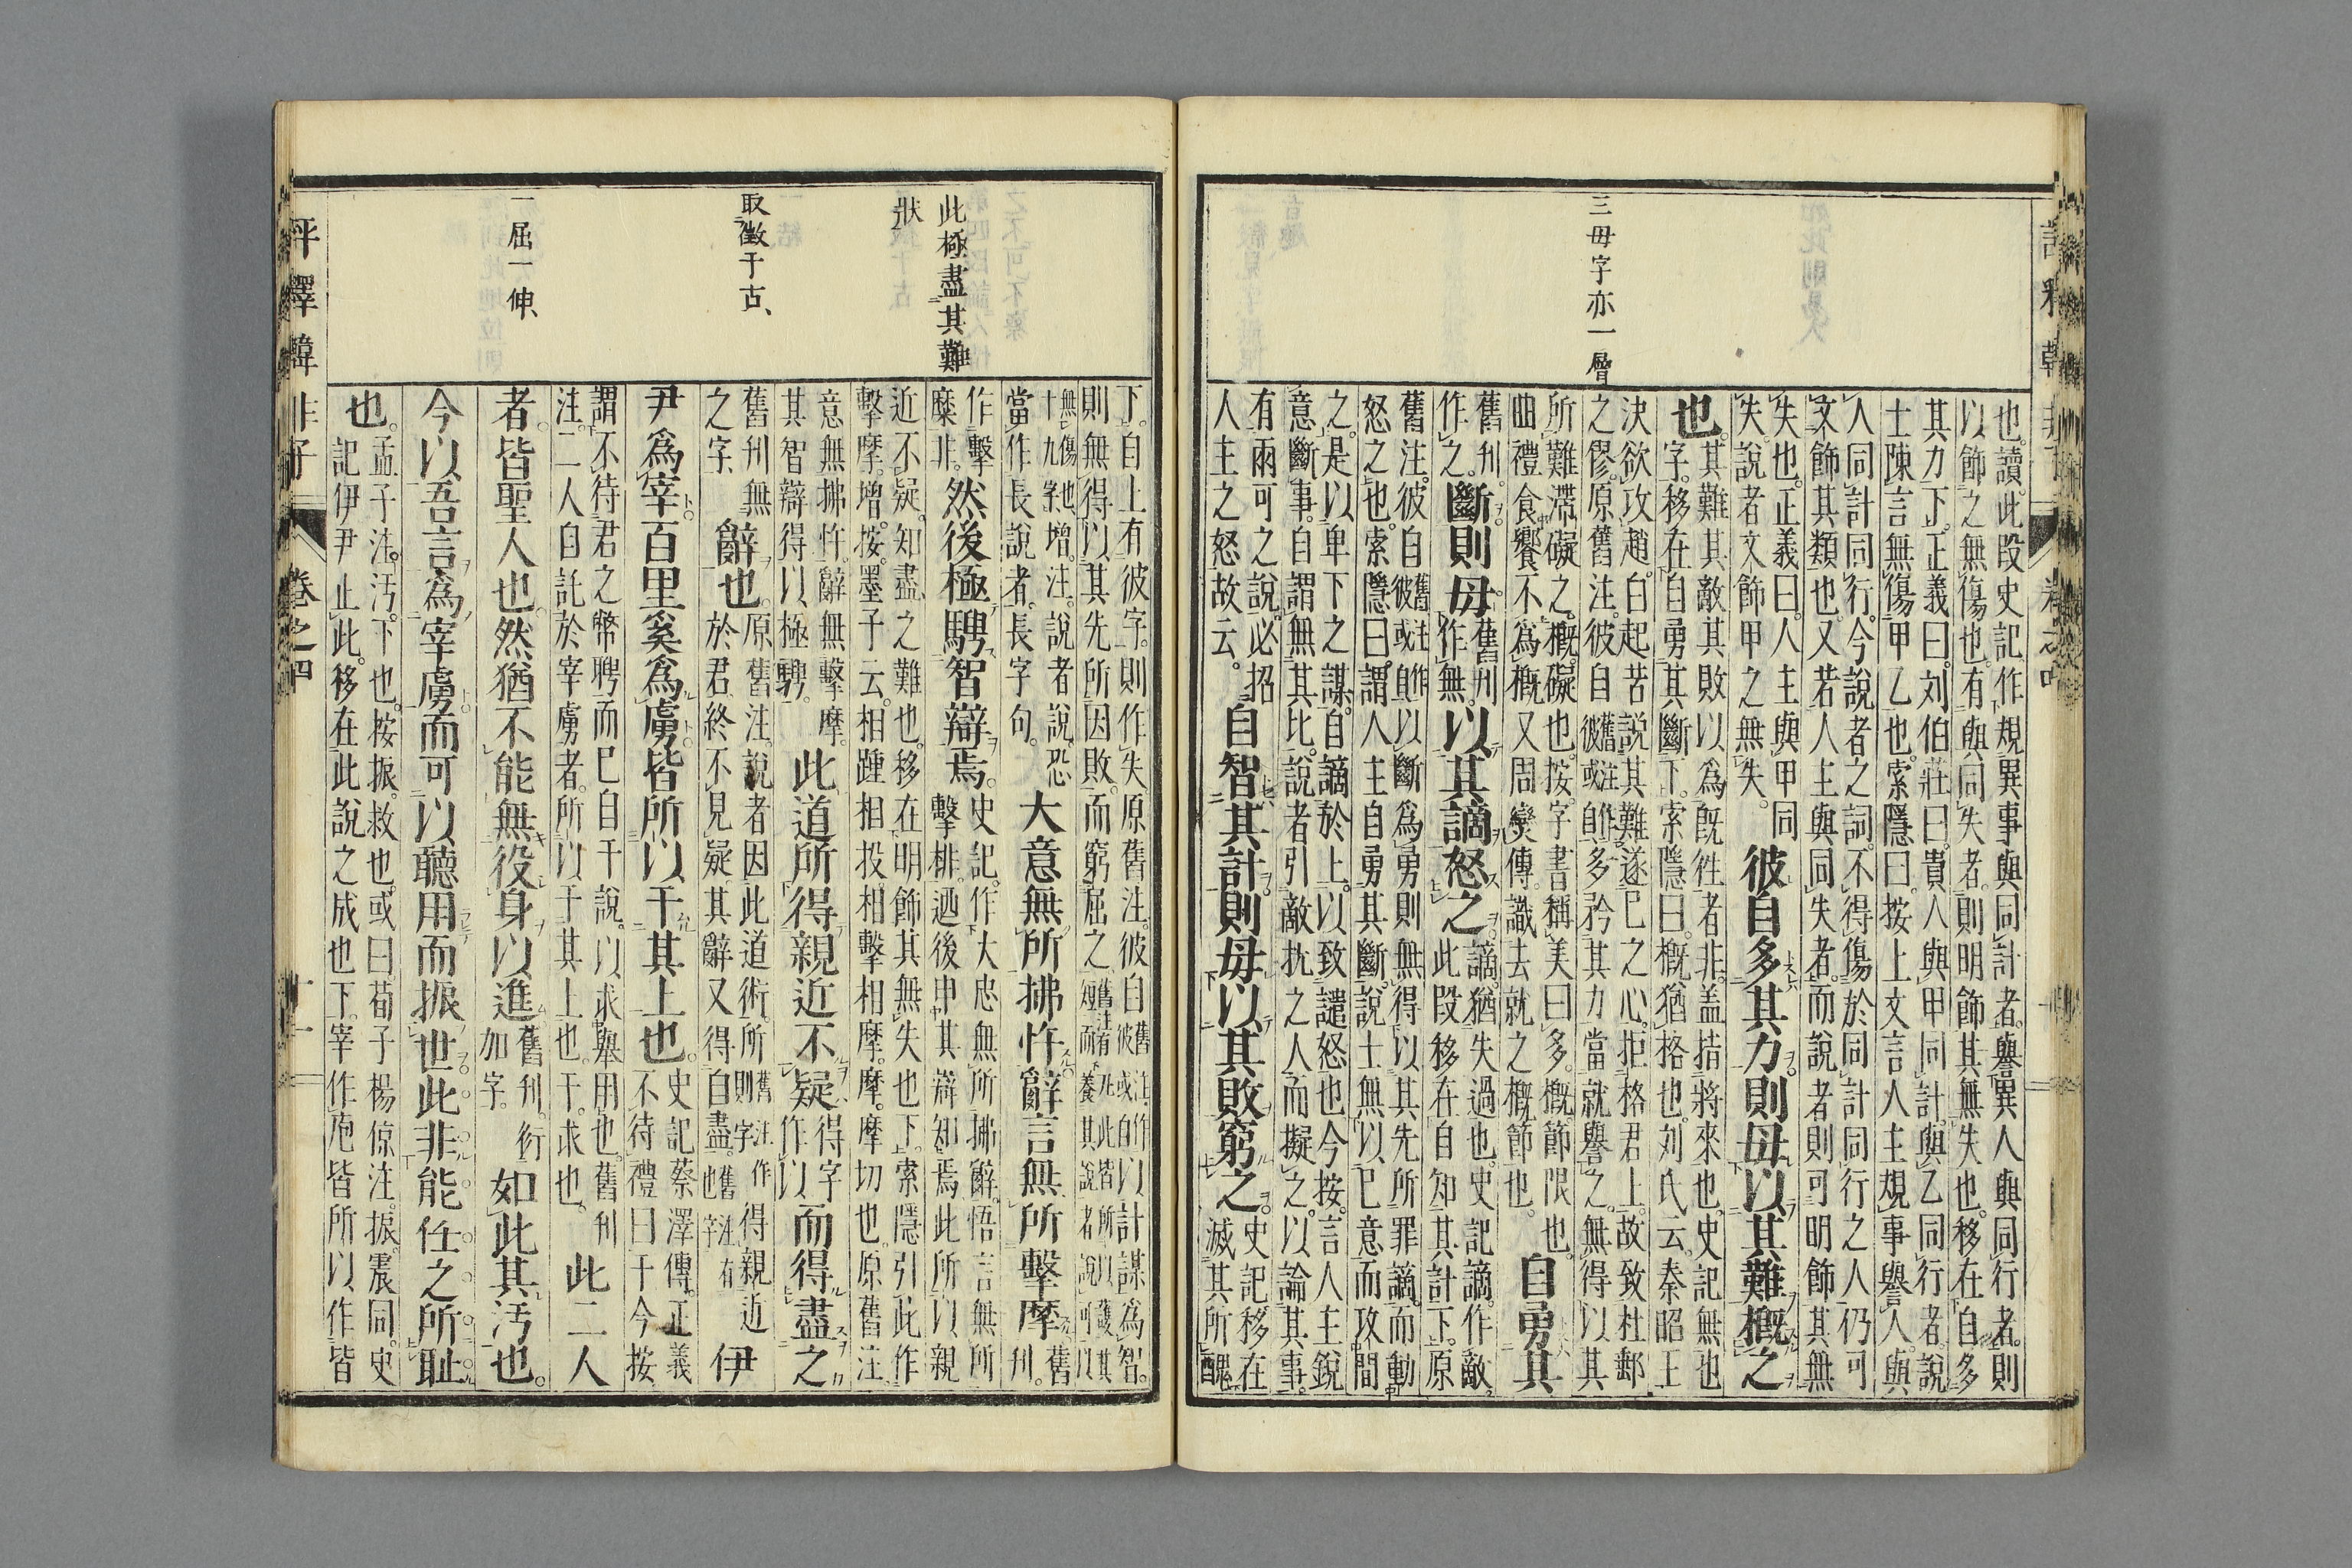 三毋字亦一層
也。讀。此段史記作規異事與同計者。譽異人與同行者。則
以飾之無傷也。有與同失者。則明飾其無失也。移在自多
其力下。正義曰。刘伯莊曰。貴人與甲同計。與乙同行者。說
士陳言無傷甲乙也。索隱曰。按上文言人主規事譽人。與
人同計同行。今說者之詞。不得傷於同計同行之人。仍可
文飾其類也。又若人主與同失者。而說者則可明飾其無
失也。正義曰。人主與甲同
失。說者文飾甲之無失。
彼自多其力。則毋以其難概之
也。
其難其敵其敗以為既徃者非。盖指將來也。史記無也
字。移在自勇其斷下。索隱曰。概猶格也。刘氏云。秦昭王
决欲攻趙。白起苦說其難。遂巳之心。拒格君上。故致杜郵
之僇。原舊注。彼自
舊注彼或作自
多矜其力當就譽之。無得以其
所難滯礙之。概礙也。按。字書稱美曰多。概。節限也。
曲禮食饗不為概。又周爕傳。識去就之概。節也。
自勇其
斷。則毋
舊刋。
作之。
舊刋
作無。
以其謫怒之。
謫。猶失過也。史記謫。作敵。
此段移在自知其計下。原
舊注。彼自
舊注彼或作自
以斷為勇則無得以其先所罪謫。而動
怒之也。索隱曰。謂人主自勇其斷。說士無以巳意而攻間
之。是以卑下之謀。自謫於上。以致譴怒也。今按。言人主銳
意斷事。自謂無其比。說者引敵抗之人而擬之。以論其事。
有兩可之說。必招
人主之怒故云。
自智其計。則毋以其敗窮之。
史記移在
滅其所醜
此極盡其難
狀
取徵于古、
一屈一伸、
下。自上有彼字。則作失。原舊注。彼自
舊注作彼或自
以計謀為智。
則無得以其先所因敗。而窮屈之
無傷也。增。注。說者說。恐
當作長說者。長字句。
大意無所拂忤。辭言無所擊摩。
舊刋。
作擊
糜非。
然後極騁智辯焉。
史記。作大忠無所拂辭。悟言無所
擊排。迺後申其辯知焉。此所以親
近不疑。知盡之難也。移在明飾其無失也下。索隱引此作
擊摩。增。按。墨子云。相踵相投相擊相摩。摩。摩切也。原舊注
意無拂忤。辭無擊摩。
其智辯得以極騁。
此道所得親近不疑。
得字
作以
而得盡之
辭也。
舊刋無
之字
原舊注。說者因此道術。所
得親近
於君。終不見疑。其辭又得自盡。
伊
尹為宰。百里奚為虜。皆所以干其上也。
史記蔡澤傳。正義
不待禮曰干。今按
謂不待君之幣聘而巳自干說。以求舉用也。舊刋
注。二人自託於宰虜者。所以干其上也。干。求也。
此二人
者。皆聖人也。然猶不能無役身以進
舊刋。衍
加字。
如此其汚也。
今以吾言為宰虜。而可以聽用而振世。此非能任之所耻
也。
孟子注。汚。下也。按振。救也。或曰荀子楊倞注。振。震同。史
記伊尹止此。移在此說之成也下。宰作庖。皆所以作皆
評釋韓非子
卷之四
十一